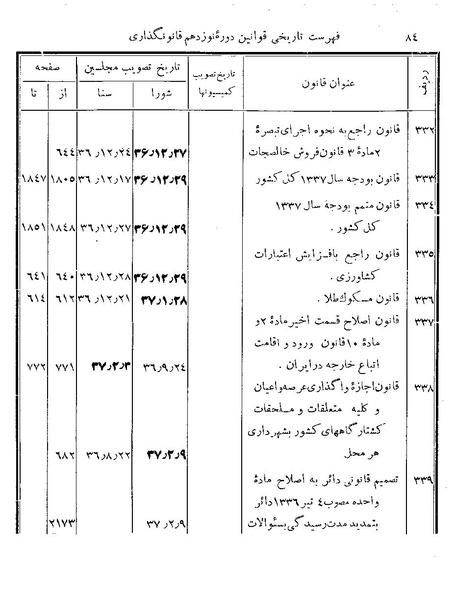 ۸٤ فهرست تاریخی قوانین دورهٔ نوزدهم قانونگذاری
ردیف عنوان قانون تاریخ تصویب کمیسیونها تاریخ تصویب مجلسین صفحه
شورا سنا از تا
۳۳۲ قانون راجع به نحوه اجرای تبصرهٔ
۲ مادهٔ ۳ قانون فروش خالصجات ۳۶٫۱۲٫۲۷ ۳۶٫۱۲٫۲٤ ۶٤٤
۳۳۳ قانون بودجه سال ۱۳۳۷ کل کشور ۳۶٫۱۲٫۲۹ ۳۶٫۱۲٫۱۷ ۱۸۰۵ ۱۸٤۷
۳۳٤ قانون متمم بودجه سال ۱۳۳۷
کل کشور . ۳۶٫۱۲٫۲۹ ۳۶٫۱۲٫۲۷ ۱۸٤۸ ۱۸۵۱
۳۳۵ قانون راجع بافزایش اعتبارات
کشاورزی . ۳۶٫۱۲٫۲۹ ۳۶٫۱۲٫۲۸ ۶٤۰ ۶٤۱
۳۳۶ قانون مسکوک طلا . ۳۷٫۱٫۲۸ ۳۶٫۱۲٫۲۱ ۶۱۲ ۶۱٤
۳۳۷ قانون اصلاح قسمت اخیر مادهٔ ۲ و
مادهٔ ۱۰ قانون ورود و اقامت
اتباع خارجه در ایران . ۳۶٫۹٫۲٤ ۳۷٫۲٫۳ ۷۷۱ ۷۷۲
۳۳۸ قانون اجازهٔ واگذاری عرصه و اعیان
و کلیه متعلقات و ملحقات
کشتارگاههای کشور بشهرداری
هر محل ۳۷٫۲٫۹ ۳۶٫۸٫۲۲ ۶۸۲
۳۳۹ تصمیم قانونی دائر به اصلاح مادهٔ
واحده مصوب ٤ تیر ۱۳۳۶ دائر
بتمدید مدت رسیدگی بسئوالات ۳۷٫۲٫۹ ۲۱۷۳